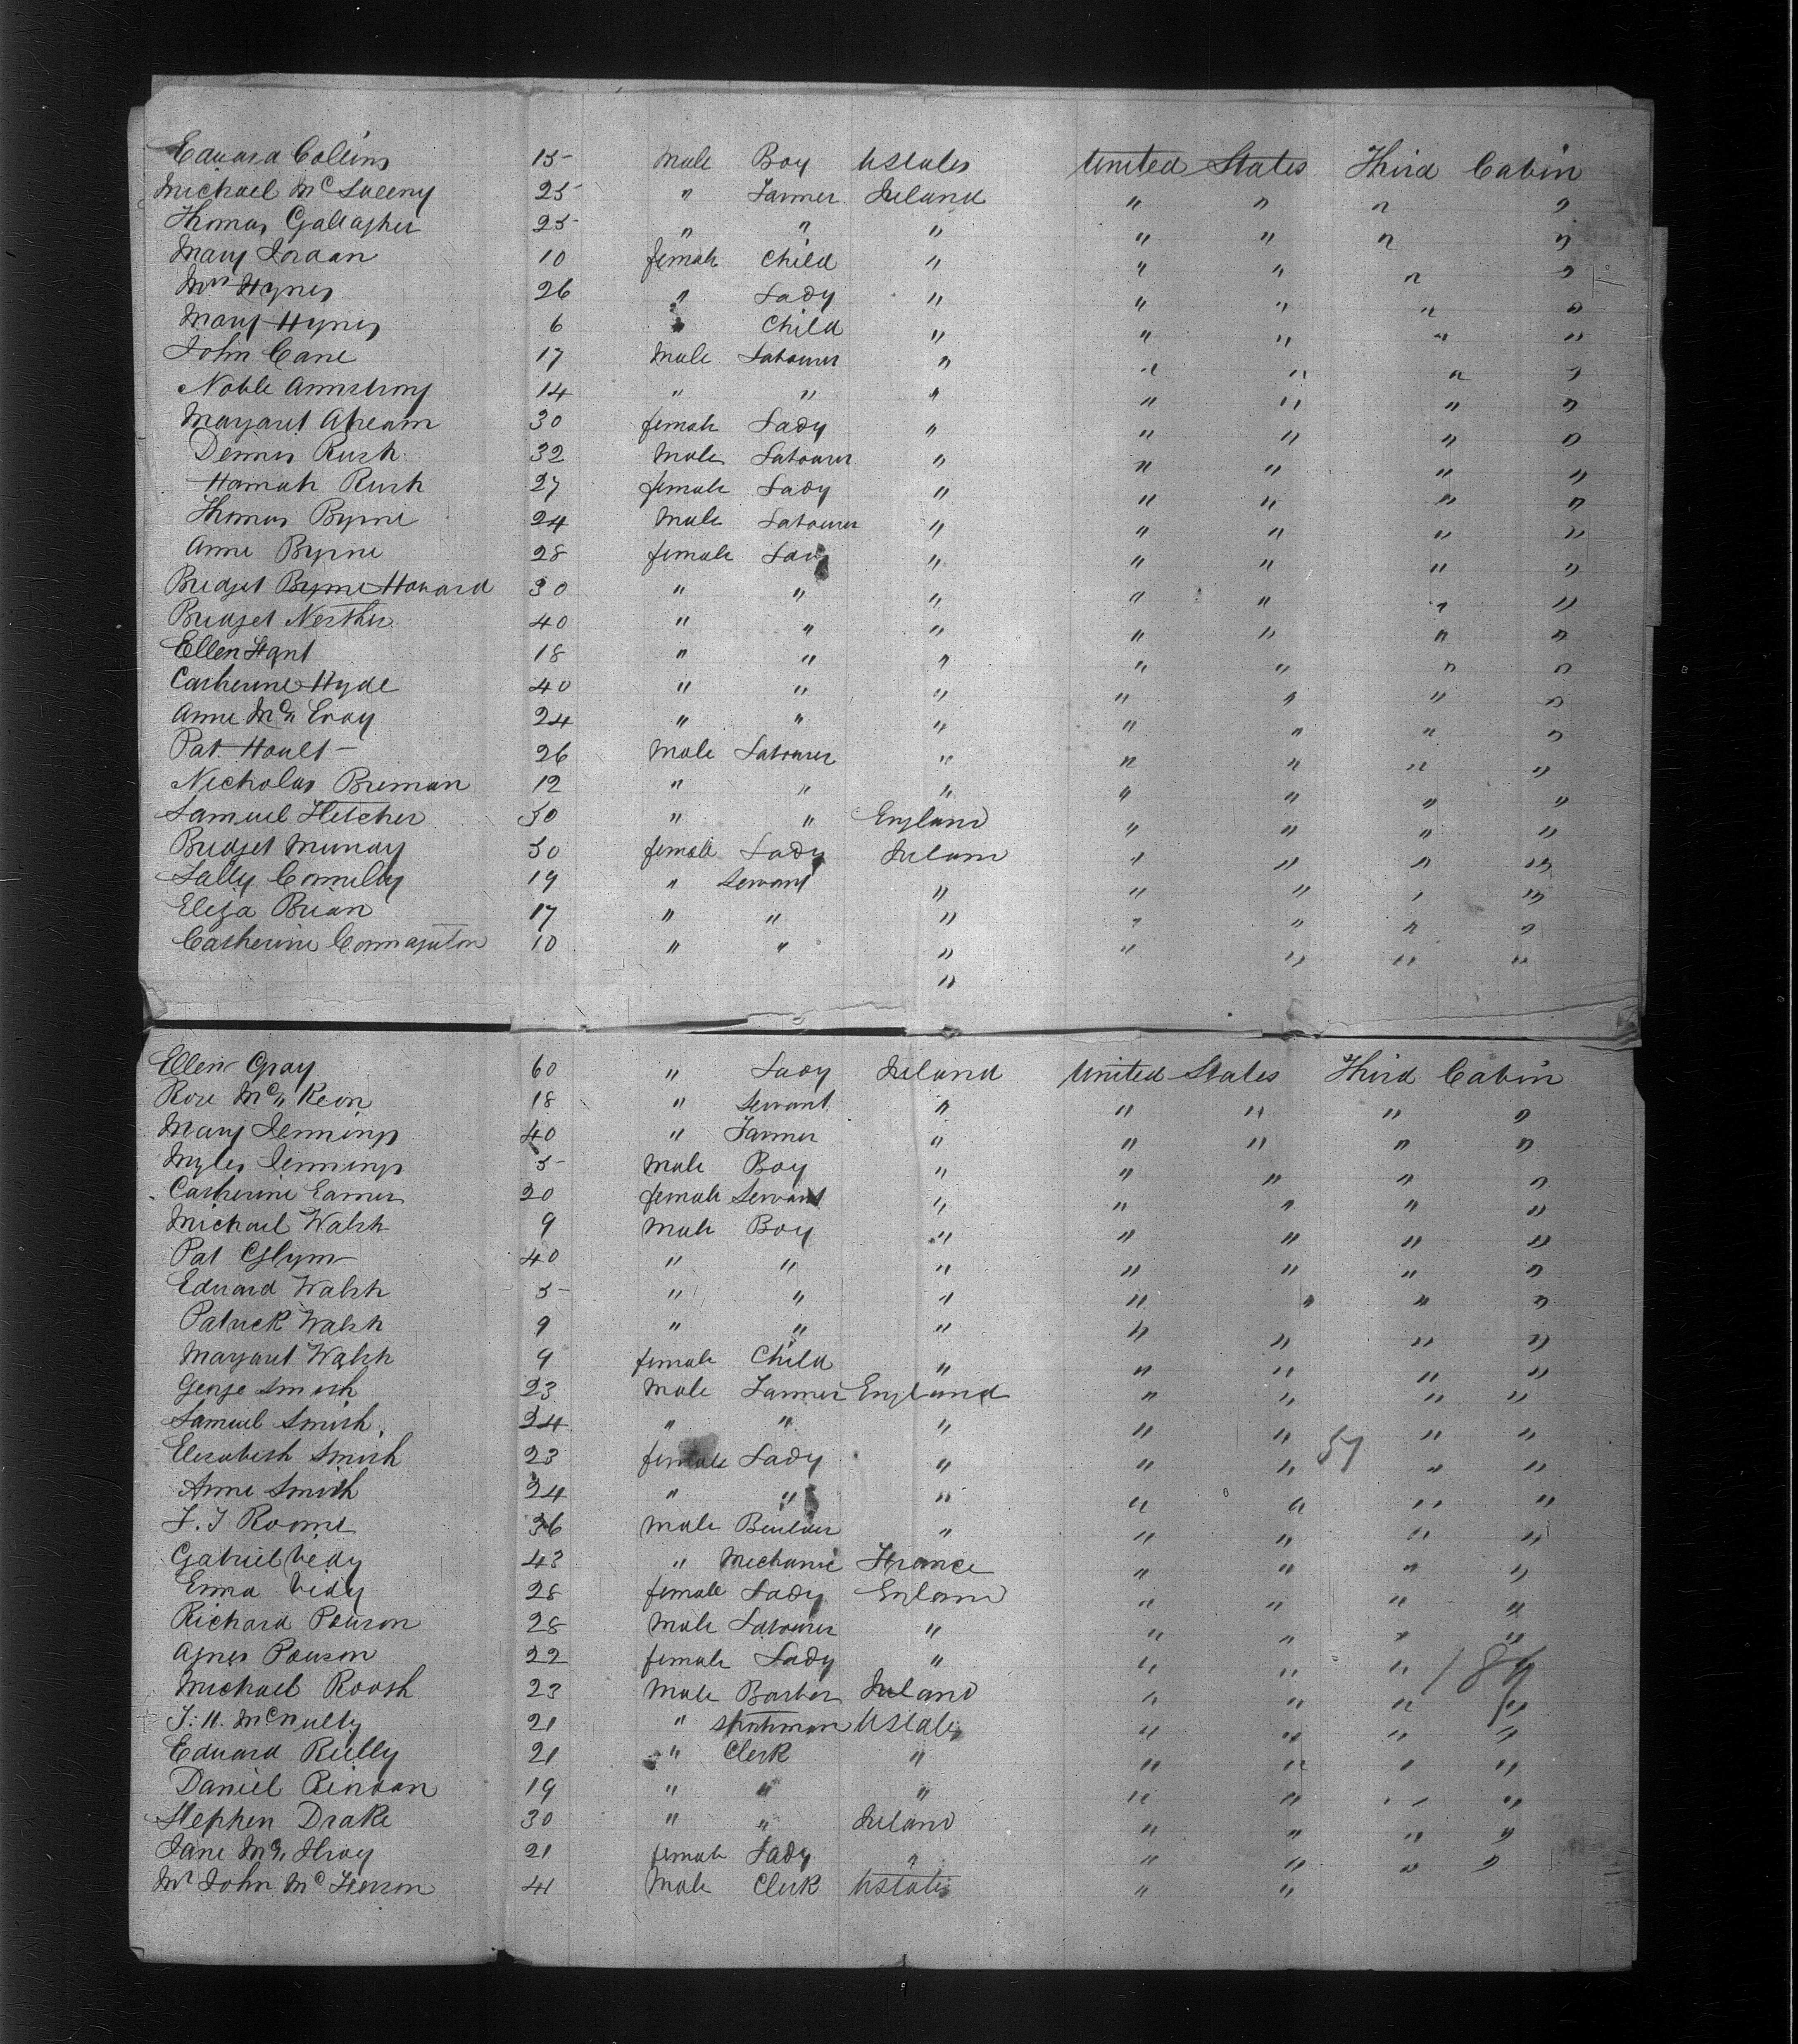 Edward Collins 15 Male Boy UStates United States Third Cabin
Michael McSweeny 25 " Farmer Ireland " " " "
Thomas Gallagher 25 " " " " " " "
Mary Jordan 10 female Child " " " " "
Mrs Hynes 26 " Lady " " " " "
Mary Hynes 6 " Child " " " " "
John Cane 17 Male Labourer " " " " "
Noble Armstrong 14 " " " " " " "
Margaret Ahearn 30 female Lady " " " " "
Dennis Rush 32 Male Labourer " " " " "
Hannah Rush 27 female Lady " " " " "
Thomas Byrne 24 Male Labourer " " " " "
Anne Byrne 28 female Lady " " " " "
Bridget Byrne Howard 30 " " " " " " "
Bridget 40 " " " " " " "
Ellen 18 " " " " " " "
Catherine Hyde 40 " " " " " " "
Anne Mc" Evoy 24 " " " " " " "
Pat Hoult 26 Male Labourer " " " " "
Nicholas Brennan 12 " " " " " " "
Samuel Fletcher 30 " " England " " " "
Bridget Murray 30 female Lady Ireland " " " "
Sally Connelly 19 " Servant " " " " "
Eliza Brian 17 " " " " " " "
Catherine 10 " " " " " " "
"
Ellen Gray 60 " Lady Ireland United States Third Cabin
Rose Mc" Keon 18 " Servant " " " " "
Mary Jennings 40 " Farmer " " " " "
Myles Jennings 5 Male Boy " " " " "
Catherine Eames 20 female Servant " " " " "
Michael Walsh 9 Male Boy " " " " "
Pat Glynn 40 " " " " " " "
Edward Walsh 5 " " " " " " "
Patrick Walsh 9 " " " " " " "
Margaret Walsh 9 female Child " " " " "
George Smith 23 Male Farmer England " " " "
Samuel Smith 24 " " " " " " "
Elizabeth Smith 23 female Lady " " " 57 " "
Anne Smith 24 " " " " " " "
F. J Roome 36 Male Builder " " " " "
Gabriel Vedy 43 " Mechanic France " " " "
Emma Vedy 28 female Lady England " " " "
Richard Pouson 28 Male Labourer " " " " "
Agnes Pouson 22 female Lady " " " " 184
Michael Roash 23 Male Barber Ireland " " " "
J. H. McNulty 21 " UStates " " " "
Edward Rielly 21 " Clerk " " " " "
Daniel 19 " " " " " " "
Stephen Drake 30 " " Ireland " " " "
Jane Mc" 21 female Lady " " " " "
Mr John Mc 41 Male Clerk UStates " "